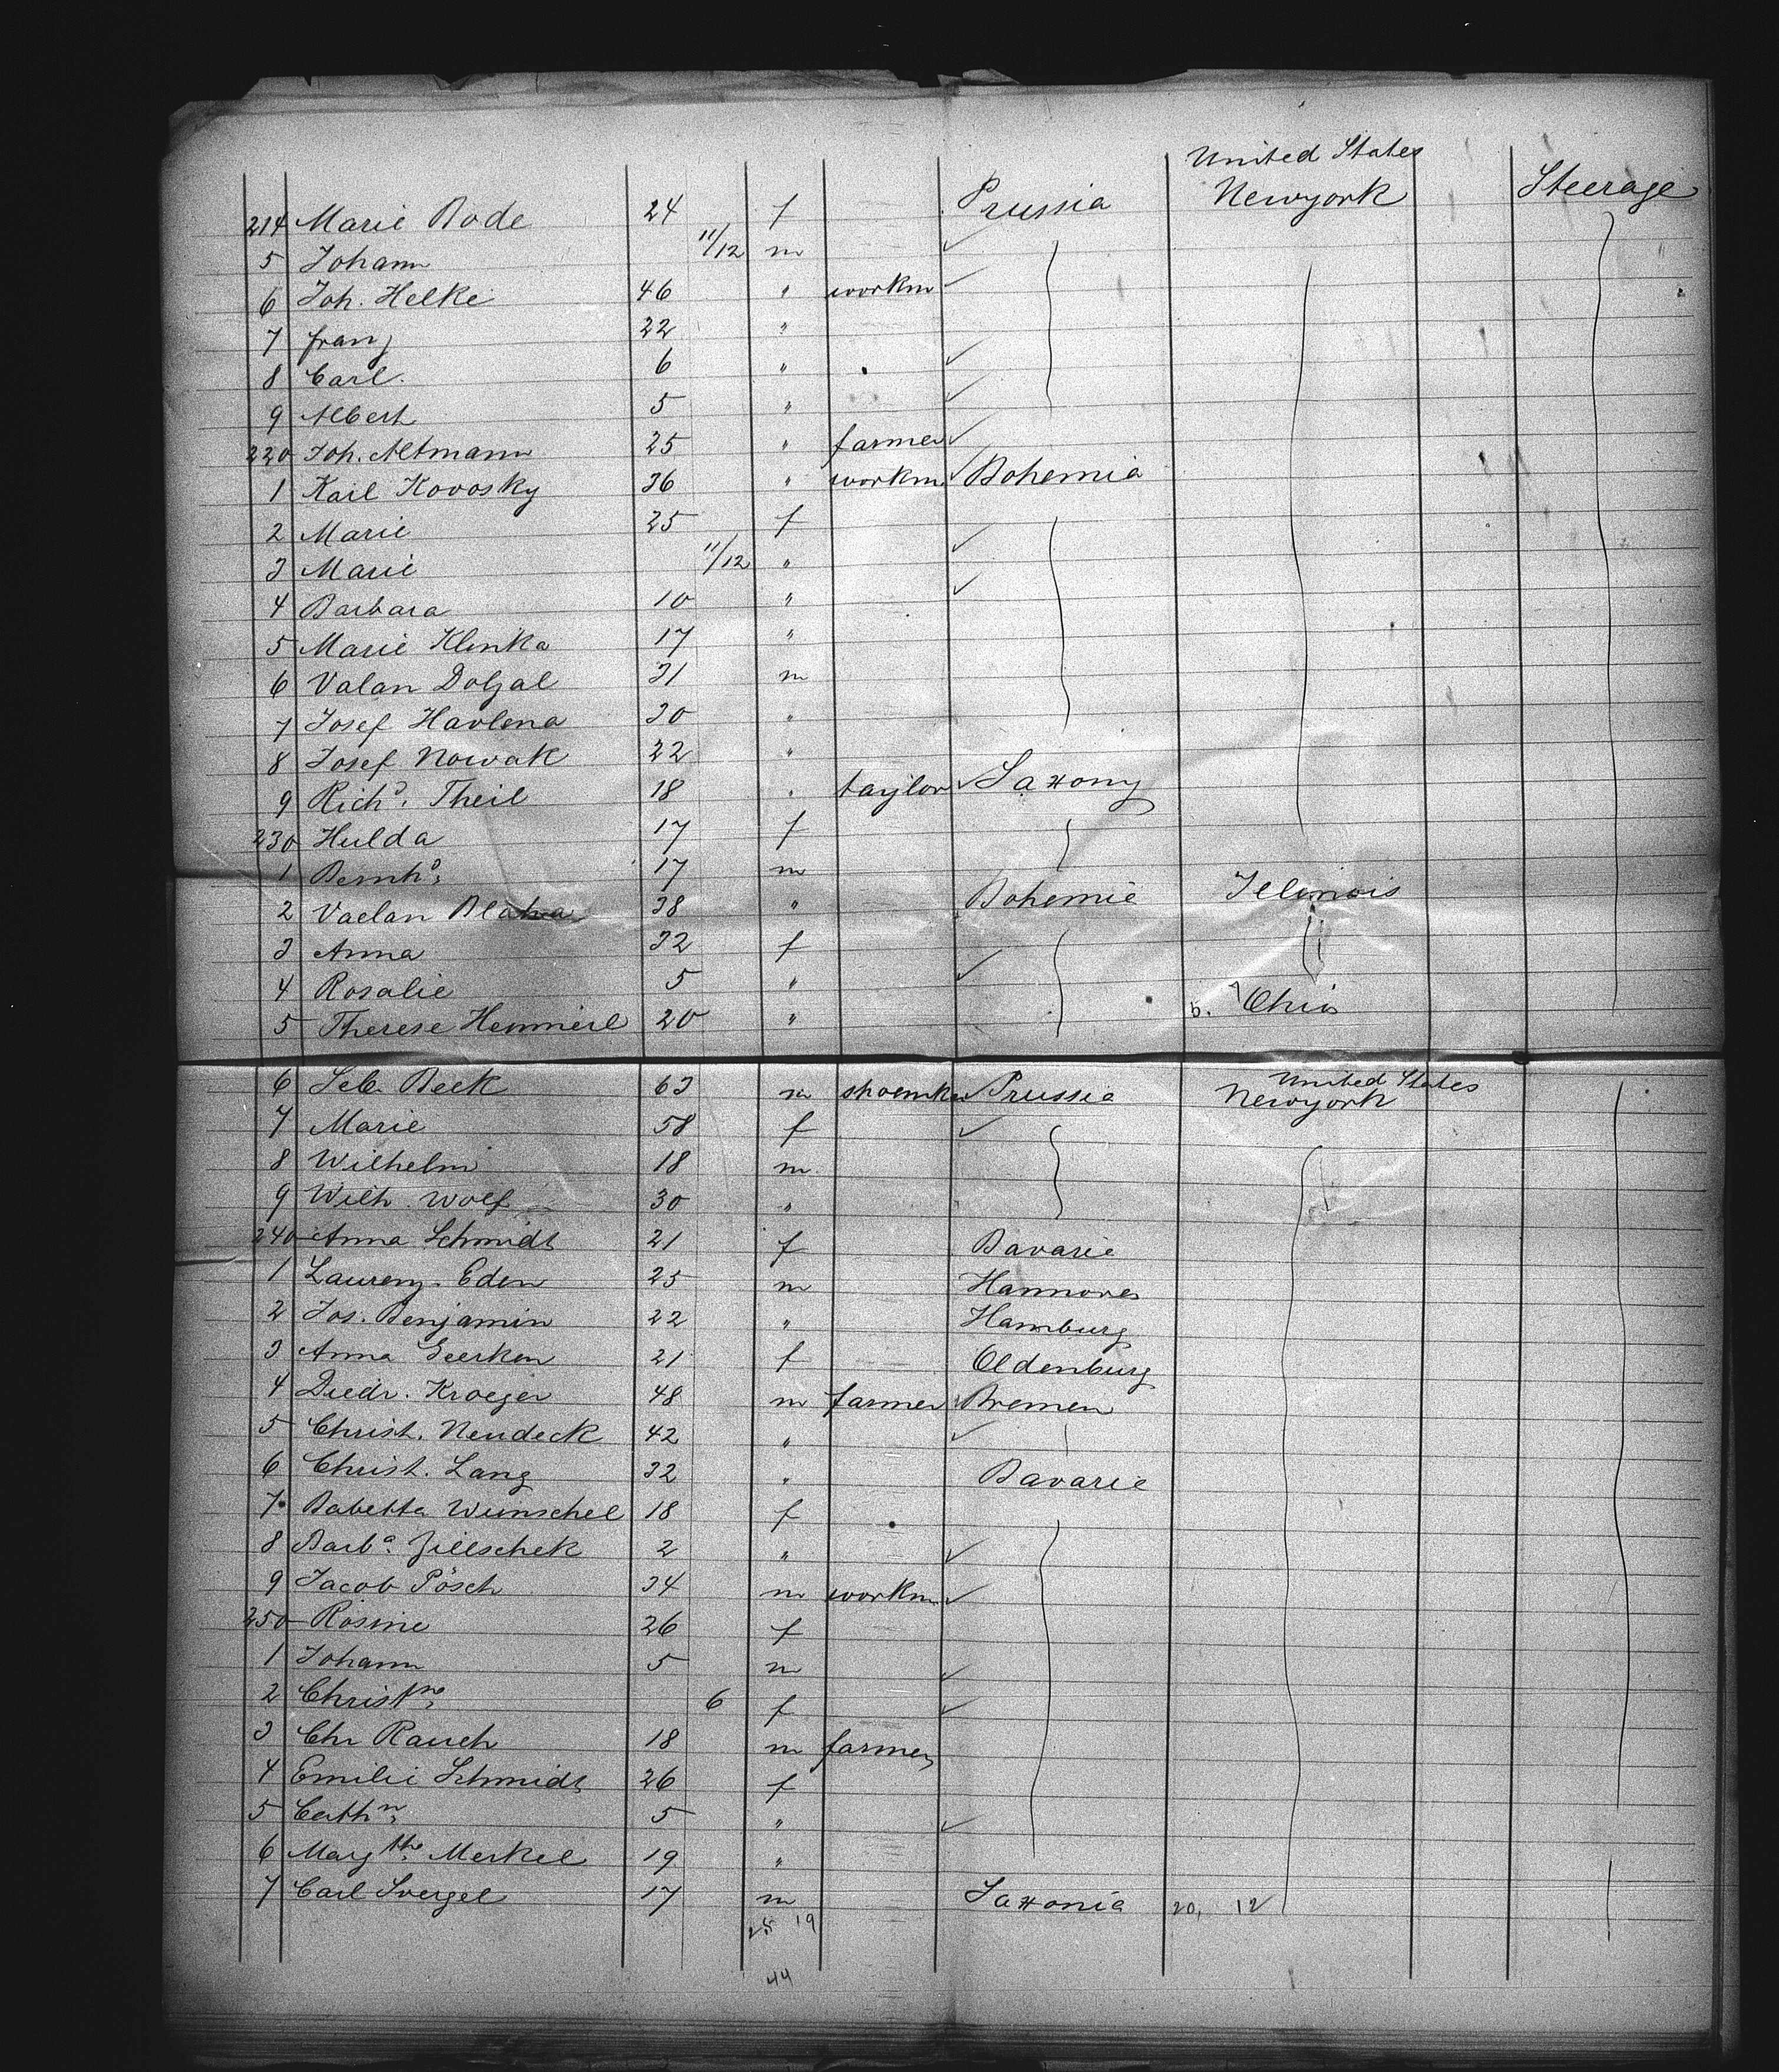 United States
214 Marie Bode 24 f Prussia Newyork Steerage
5 Johann 11/12 m
6 Joh. Helke 46 " workm
7 Franz 22 "
8 Carl. 6 "
9 Albert 5 "
220 Joh. Altmann 25 " farmer
1 Karl Kovosky 36 " workm Bohemia
2 Marie 25 f
3 Marie 11/12 "
4 Barbara 10 "
5 Marie Klinka 17 "
6 Valan Dolzal 31 m
7 Josef Havlena 30 "
8 Josef Nowak 22 "
9 Richd. Theil 18 " taylor Saxony
230 Hulda 17 f
1 Bernhd. 17 m
2 Vaclan Blaha 38 " Bohemie Illinois
3 Anna 32 f
4 Rosalie 5 "
5 Therese Hemmerl 20 " Ohio
6 Seb. Beck 63 m shoemker Prussia United States Newyork
7 Marie 58 f
8 Wilhelm 18 m
9 Wilh. Wolf 30 "
240 Anna Schmidt 21 f Bavarie
1 Laurenz Eden 25 m Hannover
2 Jos. Benjamin 22 " Hamburg
3 Anna Geerken 21 f Oldenburg
4 Diedr. Kroeger 48 m farmer Bremen
5 Christ. Neudeck 42 "
6 Christ. Lang 32 " Bavarie
7 Babetta Wunschel 18 f
8 Barba. Zieeschek 2 "
9 Jacob Pösch 34 m workm
250 Rosine 26 f
1 Johann 5 m
2 Christne. 6 f
3 Chr Rauch 18 m farmer
4 Emilie Schmidt 26 f
5 Cathn. 5 "
6 Margthe. Merkel 19 "
7 Carl Svergel 17 m Saxonia 20, 12
25 19
44